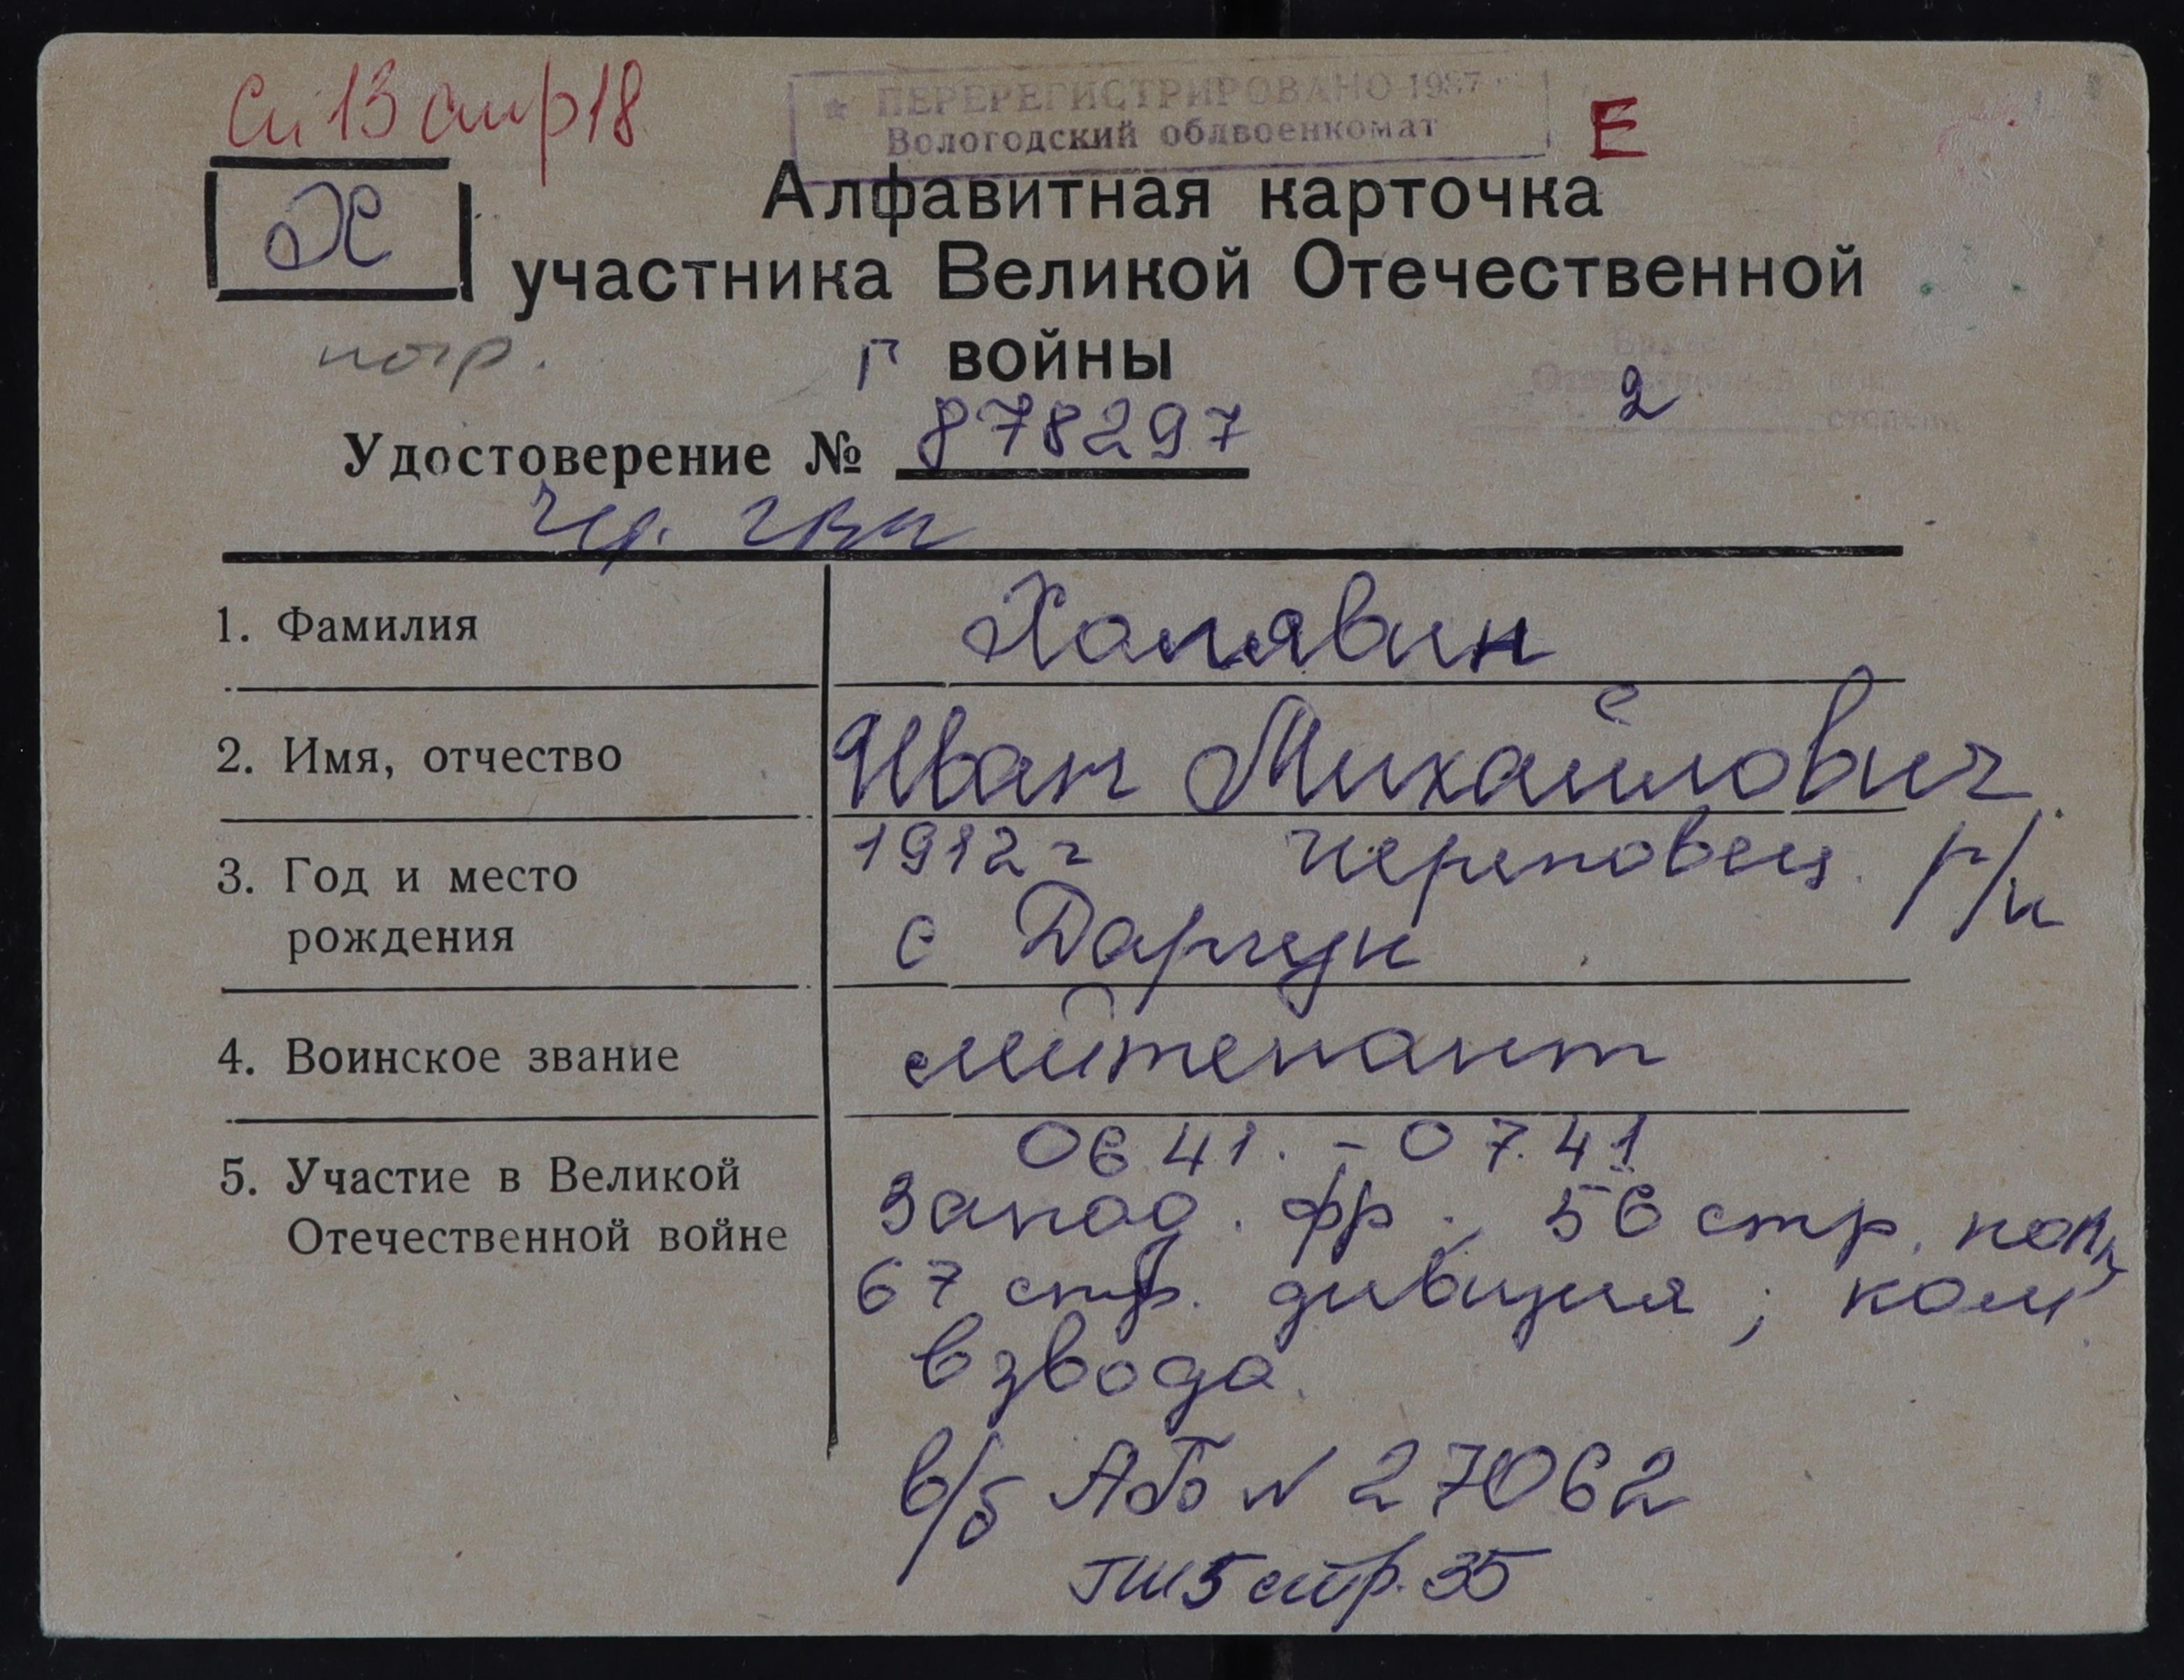 Сп 13 стр 18
★ ПЕРЕРЕГИСТРИРОВАНО 1987
Вологодский облвоенкомат
Е
Х
Алфавитная карточка
участника Великой Отечественной
войны
потр.
Г
2
степени
Удостоверение № 878297
Чер. гвк
1. Фамилия
Холявин
2. Имя, отчество
Иван Михайлович
3. Год и место
рождения
1912 г Череповец. р/н
с
4. Воинское звание
лейтенант
5. Участие в Великой
Отечественной войне
06 41. - 07.41
Запад. фр., 56 стр. полк
67 стр. дивизия; ком
взвода.
в/б АБ № 27062
стр. 35